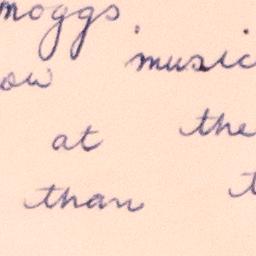 moggs.
ow music
at the
than t